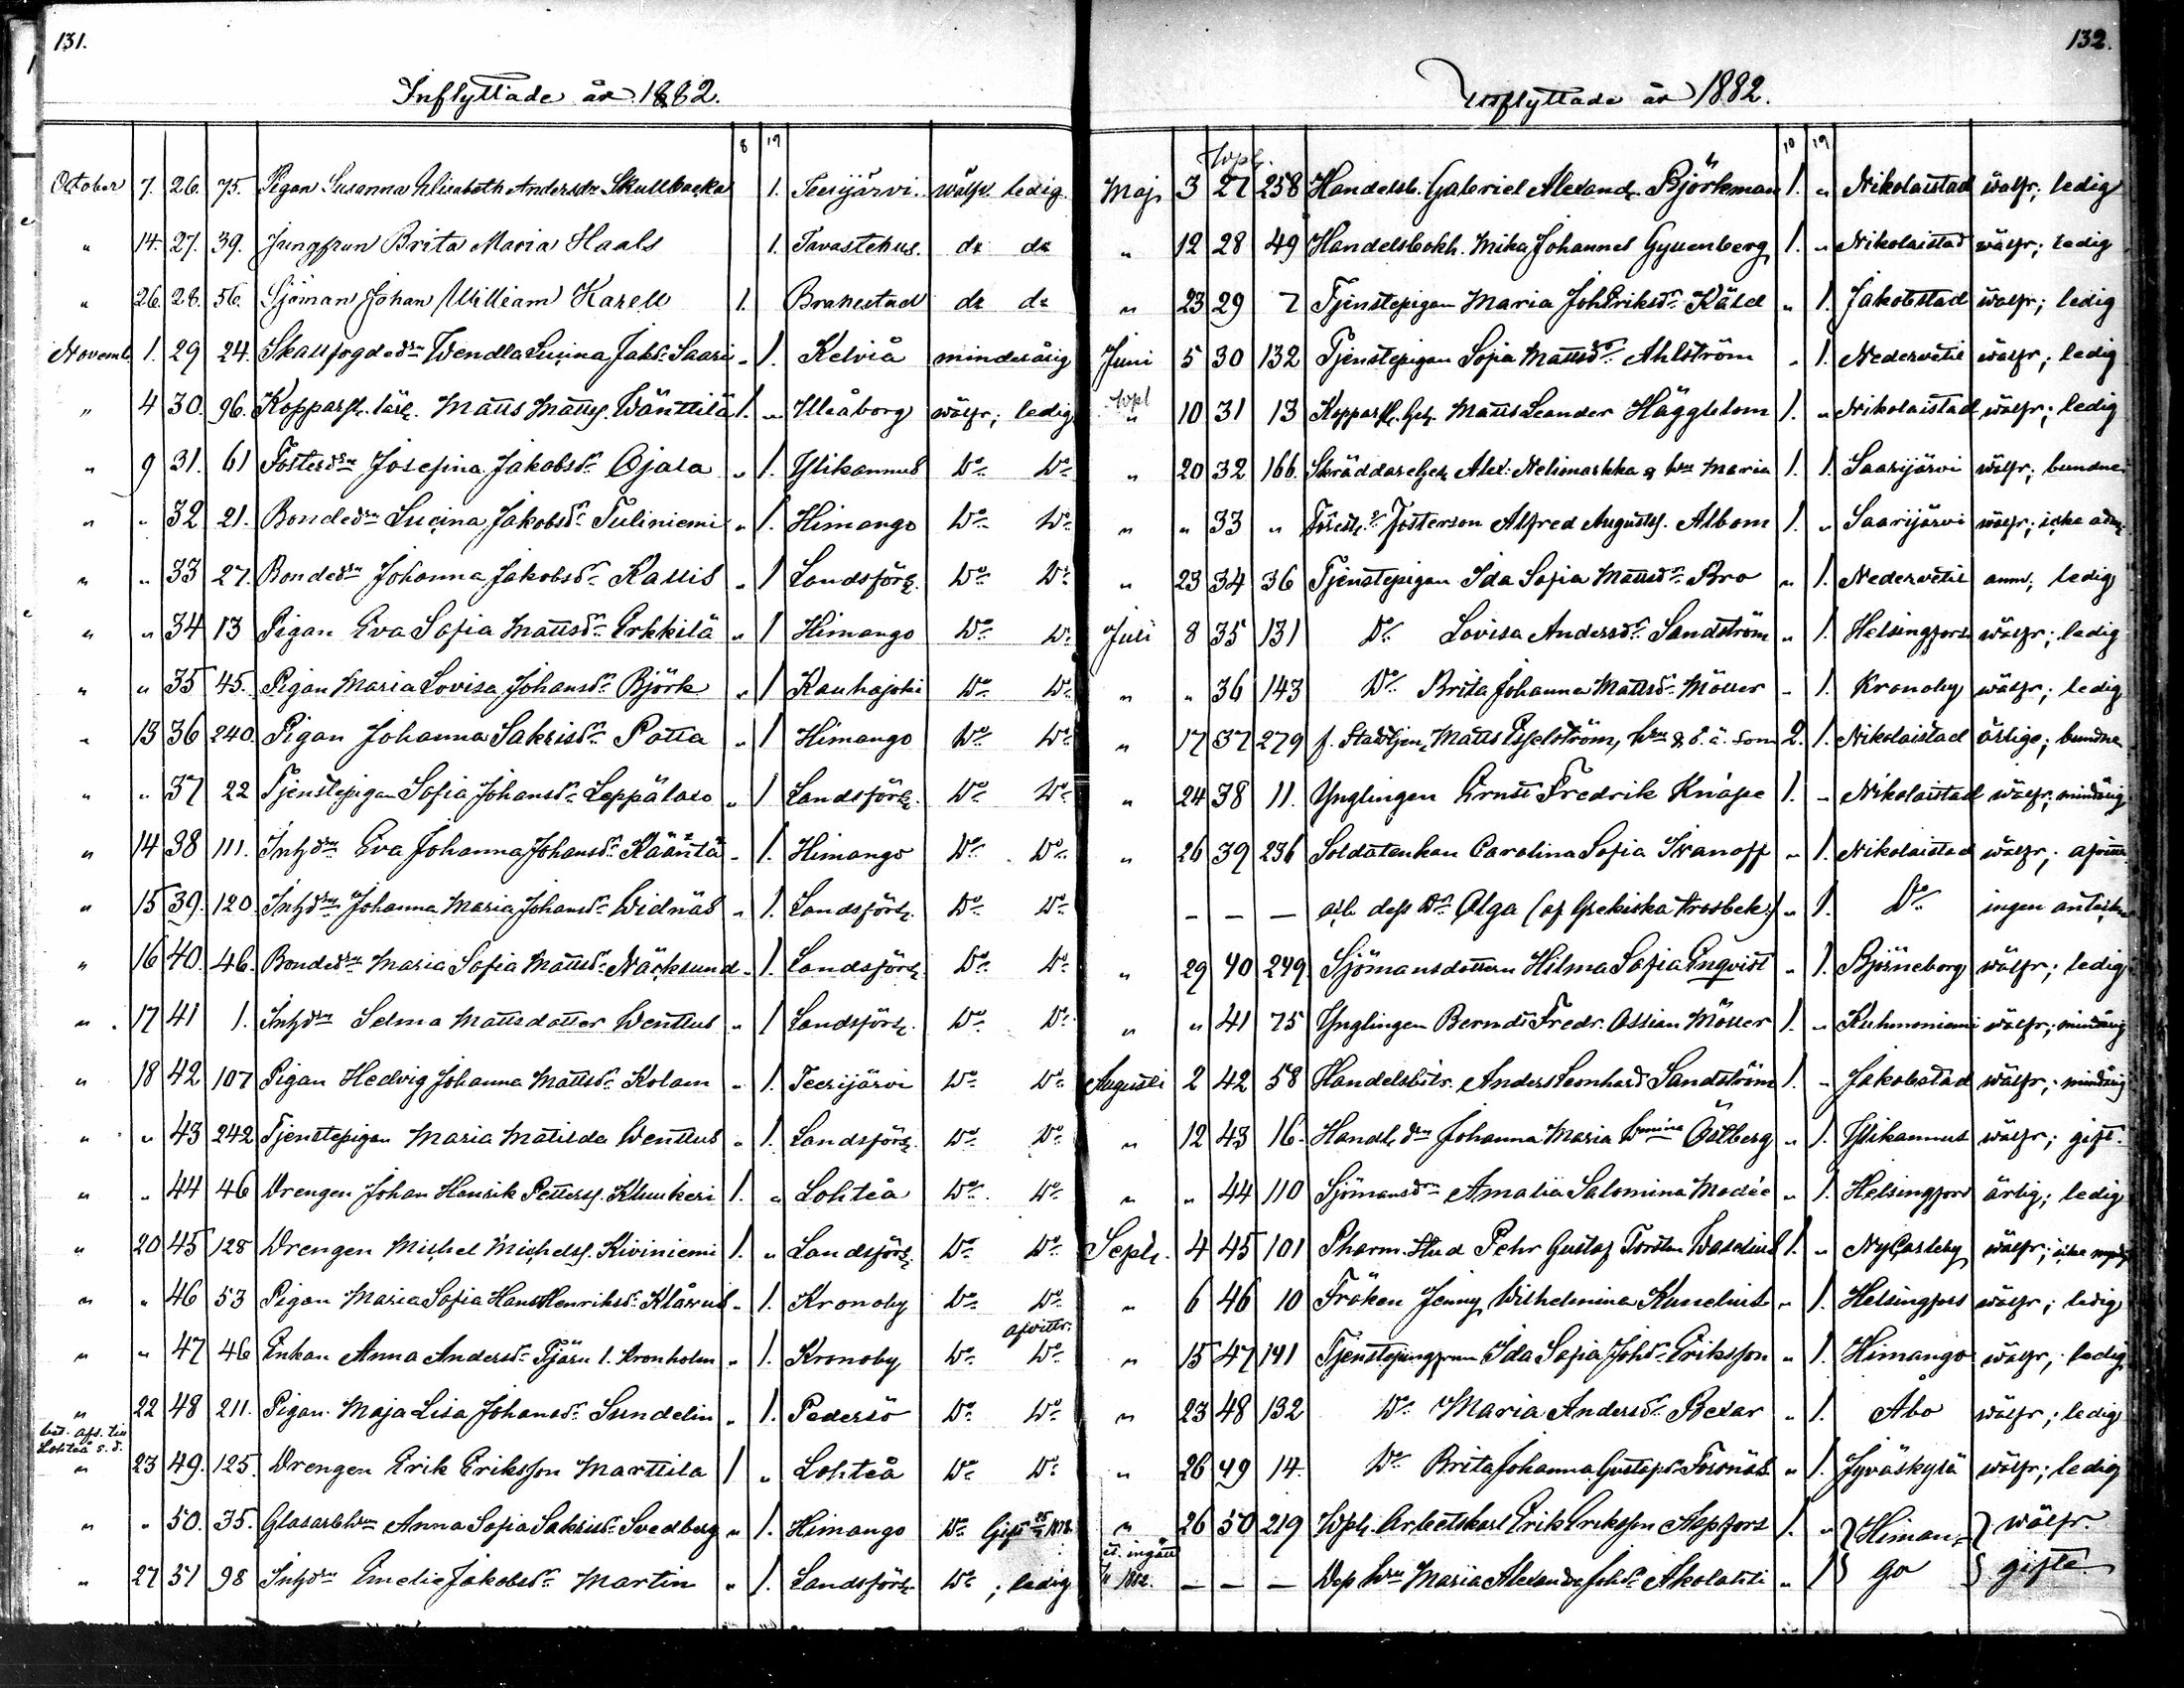 131.
Inflyttade år 1882.
8 19
October 7. 26. 75. Pigan Susanna Elisabeth Andersdr Skullbacka 1. Teerijärvi. wälfr. ledig.
" 14. 27. 39. Jungfrun Brita Maria Haals 1. Tavastehus. do do
" 26. 28. 56. Sjöman Johan William Karell 1. Brahestad do do
Novemb. 1. 29 24. Skallfogdedrn Wendla Lucina Jaksdr Saari " 1. Kelviå minderårig
" 4 30. 96. Kopparsl. lärl. Matts Mattss. Wänttilä 1. " Uleåborg wälfr; ledig
" 9 31. 61 Fosterdrn Josefina Jakobsdr Ojala " 1. Ylikannus Do Do
" " 32 21. Bondedrn Lucina Jakobsdr Tuliniemi " 1. Himango Do Do
" " 33 27. Bondedrn Johanna Jakobsdr Kallis " 1 Landsförs. Do Do
" " 34 13 Pigan Eva Sofia Mattsdr Erkkilä " 1 Himango Do Do
" " 35 45. Pigan Maria Lovisa Johansdr Björk " 1 Kauhajoki Do Do
" 13 36 240. Pigan Johanna Sakrisdr Potta " 1 Himango Do Do
" " 37 22 Tjenstepigan Sofia Johansdr Leppälaxo " 1 Landsförs. Do Do
" 14 38 111. Inhdrn Eva Johanna Johansdr Kääntä " 1. Himango Do Do
" 15 39. 120. Inhdrn Johanna Maria Johansdr Widnäs " 1. Landsförs. Do Do
" 16 40. 46. Bondedrn Maria Sofia Mattsdr Näcksund " 1. Landsförs. Do Do
" 17 41 1. Inhdrn Selma Mattsdotter Wentlus " 1 Landsförs. Do Do
" 18 42 107 Pigan Hedvig Johanna Mattsdr Kolam " 1. Teerijärvi Do Do
" " 43 242 Tjenstepigan Maria Matilda Wentlus " 1. Landsförs. Do Do
" " 44 46 Drengen Johan Henrik Petterss. Klemkeri 1. " Lohteå Do Do
" 20 45 128 Drengen Michel Michelss. Kiviniemi 1. " Landsförs. Do Do
" " 46 53 Pigan Maria Sofia Hans Henriksdr Klårus " 1. Kronoby Do Do
" " 47 46 Enkan Anna Andersdr Tjäru l. Kronholm " 1. Kronoby Do afvittr. Do
" 22 48 211. Pigan Maja Lisa Johansdr Sundelin " 1. Pedersö Do Do
bet. afs. till Lohteå s. d.
" 23 49. 125. Drengen Erik Eriksson Marttila 1 " Lohteå Do Do
" " 50. 35. Glasarbhrn Anna Sofia Sakrisdr Svedberg " 1. Himango Do Gift 1878
" 27 51 98 Inhdrn Emelie Jakobsdr Martin " 1. Landsförs. Do ; ledig
132.
Utflyttade år 1882.
10 19
Maj 3 27 258 Handelsb. Gabriel Alexand. Björkman 1. " Nikolaistad wälfr; ledig
" 12 28 49 Handelsbokh. Mika Johannes Gyllenberg 1. " Nikolaistad wälfr; ledig
" 23 29 7 Tjenstepigan Maria Joh Eriksdr Käld " 1. Jakobstad wälfr; ledig
Juni 5 30 132 Tjenstepigan Sofia Mattsdr Ahlström " 1. Nedervetil wälfr; ledig
" 10 31 13 Kopparsl. Ges. Matts Leander Hägglom 1. " Nikolaistad wälfr; ledig
" 20 32 166. Skräddareges. Alex. Nelimarkka & hu Maria 1. 1. Saarijärvi wälfr; bundne
" " 33 " Fosterson Alfred Augusts. Albom 1. " Saarijärvi wälfr; icke adm.
" 23 34 36 Tjenstepigan Ida Sofia Mattsdr Bro " 1. Nedervetil anm; ledig
Juli 8 35 131 Do Lovisa Andersdr Sandström " 1. Helsingfors wälfr; ledig
" " 36 143 Do Brita Johanna Mattsdr Möller " 1. Kronoby wälfr; ledig
" 17 37 279 f. Stadstjen. Matts Esselström, hru & o. ä. son 2. 1. Nikolaistad ärlige; bundne
" 24 38 11. Ynglingen Ernst Fredrik Knape 1. " Nikolaistad wälfr; mindårig
" 26 39 236 Soldatenkan Carolina Sofia Ivanoff " 1. Nikolaistad wälfr; afvittr.
— — — och dess dr Olga (af Grekiska trosbek.) " 1. Do ingen anteckn.
" 29 40 249 Sjömansdottern Hilma Sofia Enqvist " 1. Björneborg wälfr; ledig
" " 41 75 Ynglingen Berndt Fredr. Ossian Möller 1. " Kuhmoniemi wälfr; mindårig
Augusti 2 42 58 Handelsbitr. Anders Leonhard Sandström 1. " Jakobstad wälfr; mindårig
" 12 43 16. Handl. drn Johanna Maria Wmina Östberg " 1. Ylikannus wälfr; gift.
" " 44 110 Sjömansdrn Amalia Salomina Modée " 1. Helsingfors ärlig; ledig
Septr. 4 45 101 Pharm. Stud Pehr Gustaf Torsten Waselius 1. " NyCarleby wälfr;
" 6 46 10 Fröken Jenny Wilhelmina Kunelius " 1. Helsingfors wälfr; ledig
" 15 47 141 Tjenstejungfrun Ida Sofia Johsdr Eriksson " 1. Himango wälfr; ledig
" 23 48 132 Do Maria Andersdr Bexar " 1. Åbo wälfr; ledig
" 26 49 14. Do Brita Johanna Gustafsdr Forsnäs " 1. Jyväskylä wälfr; ledig
" 26 50 219 Wpl. Arbetskarl Erik Eriksson Aspfors 1. " Himan= wälfr.
ingått 1882. — — — Dess hru Maria Alexandra Johsdr Akolahti " 1 go gifte